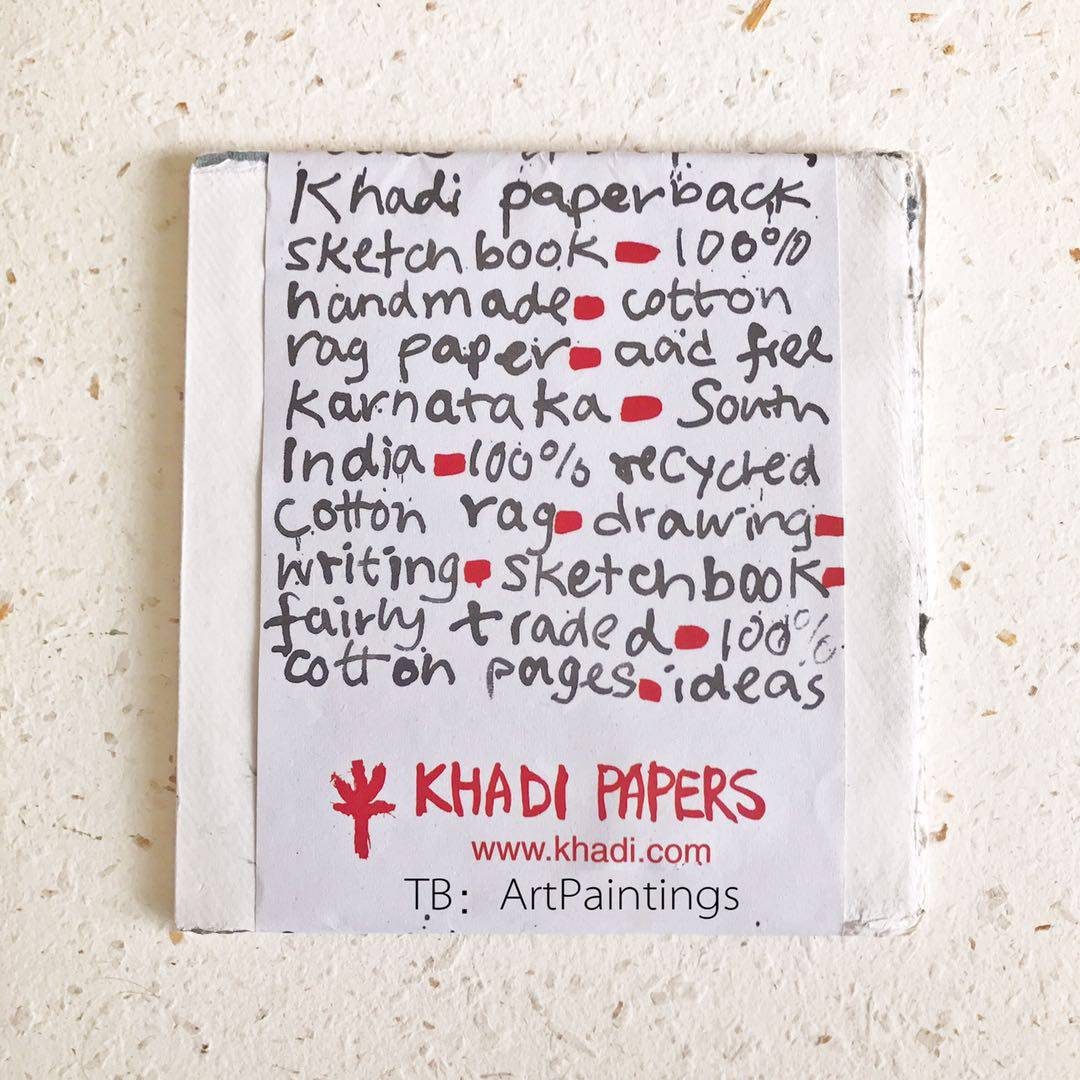 Khadi paperback
sketchbook 100%
handmade cotton
rag paper acid free
Karnataka South
India 100% recycled
cotton rag drawing
writing sketchbook
fairly traded 100%
cotton pages ideas
KHADI PAPERS
www.khadi.com
TB: ArtPaintings